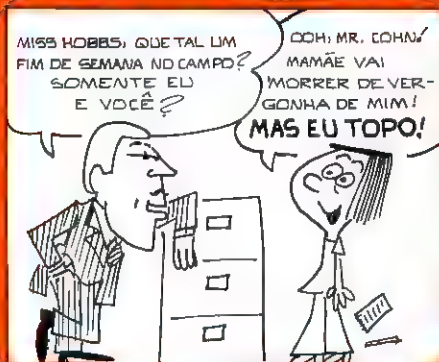 MISS HOBBS, QUE TAL UM
FIM DE SEMANA NO CAMPO?
SOMENTE EU
E VOCÊ?
OOH, MR. COHN!
MAMÃE VAI
MORRER DE VER-
GONHA DE MIM!
MAS EU TOPO!